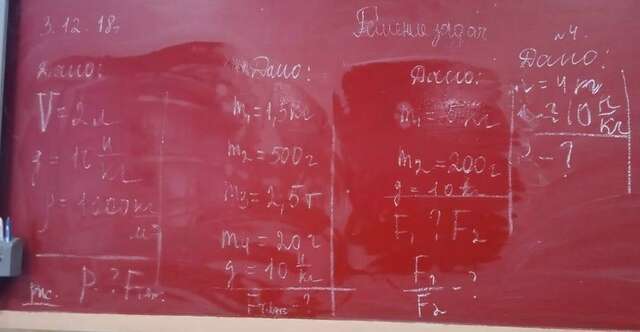 3.12.18г
Решение задач
Дано:
V=2л
g=10 Н/кг
м³
P-? Fт-?
рис.
Дано:
m₁=1,5кг
m₂=500г
m₃=2,5т
m₄=20г
g=10 Н/кг
Дано:
m₂=200г
g=10
F₁ ? F₂
F₁/F₂ -?
№4.
Дано:
=4т
10 Н/кг
P-?